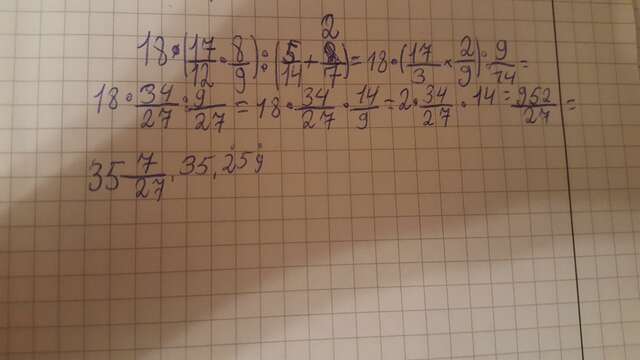 18·(17/12·8/9):(5/14+2/7)=18·(17/3×2/9):9/14=
18·34/27:9/27=18·34/27·14/9=2·34/27·14=952/27=
35 7/27. 35,259